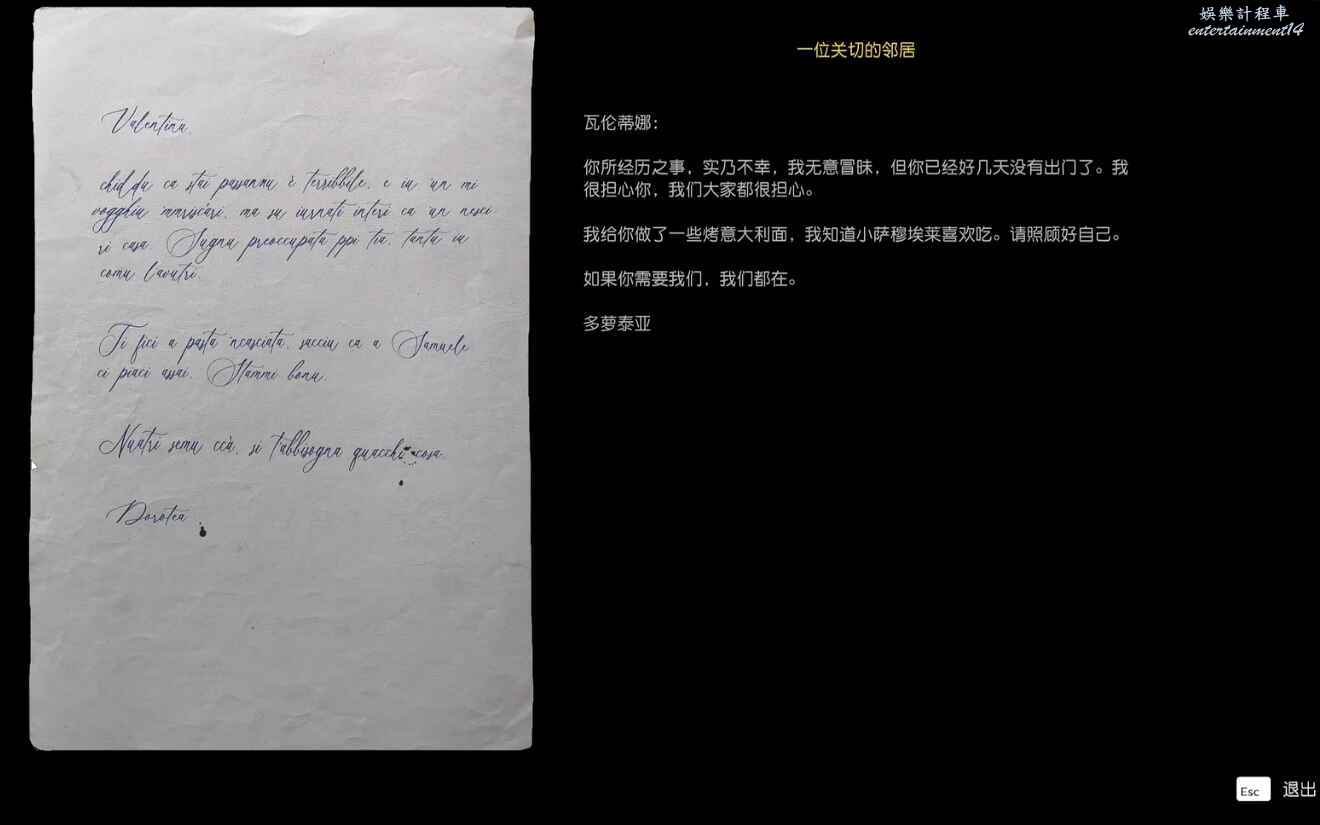 娛樂計程車
entertainment14
一位关切的邻居
Valentina,
chiddu ca stai passannu è terribbile, e iu 'un mi
vogghiu 'mmiscàri, ma su iurnati interi ca 'un nesci
ri casa. Sugnu preoccupata ppi tia, tantu iu
comu l'avutri.
Ti fici a pasta 'ncasciata, sacciu ca a Samuele
ci piaci assai. Stammi bonu.
Nuatri semu ccà, si t'abbisogna quacchi cosa.
Dorotea
瓦伦蒂娜:
你所经历之事，实乃不幸，我无意冒昧，但你已经好几天没有出门了。我
很担心你，我们大家都很担心。
我给你做了一些烤意大利面，我知道小萨穆埃莱喜欢吃。请照顾好自己。
如果你需要我们，我们都在。
多萝泰亚
Esc 退出